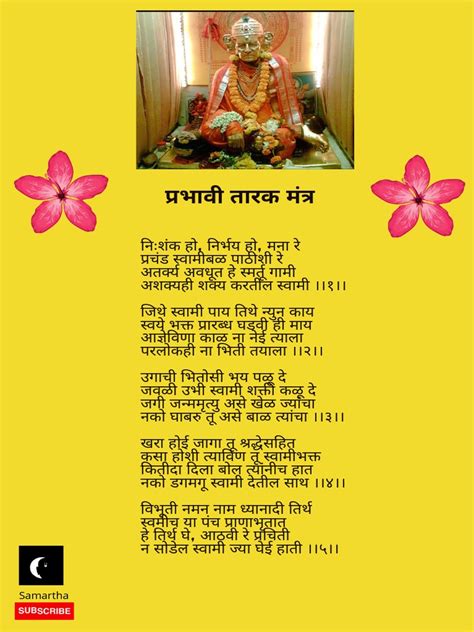 प्रभावी तारक मंत्र
निःशंक हो, निर्भय हो, मना रे
प्रचंड स्वामीबळ पाठीशी रे
अतर्क्य अवधूत हे स्मर्तू गामी
अशक्यही शक्य करतील स्वामी ।।१।।
जिथे स्वामी पाय तिथे न्युन काय
स्वये भक्त प्रारब्ध घडवी ही माय
आज्ञेविणा काळ ना नेई त्याला
परलोकही ना भिती तयाला ।।२।।
उगाची भितोसी भय पळू दे
जवळी उभी स्वामी शक्ती कळू दे
जगी जन्ममृत्यु असे खेळ ज्यांचा
नको घाबरु तू असे बाळ त्यांचा ।।३।।
खरा होई जागा तू श्रद्धेसहित
कसा होशी त्याविण तू स्वामीभक्त
कितीदा दिला बोल त्यांनीच हात
नको डगमगू स्वामी देतील साथ ।।४।।
विभूती नमन नाम ध्यानादी तिर्थ
स्वमीच या पंच प्राणाभूतात
हे तिर्थ घे, आठवी रे प्रचिती
न सोडेल स्वामी ज्या घेई हाती ।।५।।
Samartha
SUBSCRIBE